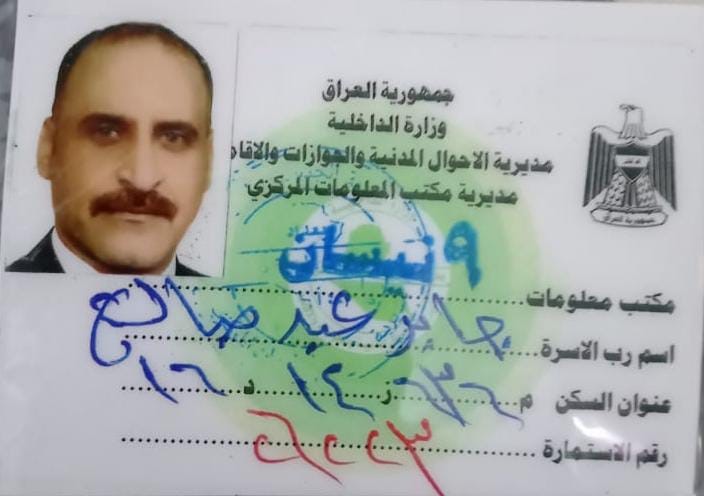 جمهورية العراق
وزارة الداخلية
مديرية الاحوال المدنية والجوازات والاقا
مديرية مكتب المعلومات المركزي
مكتب معلومات ٩ نيسان
اسم رب الاسرة عبد صالح
عنوان السكن م ز ١٤ د ١٦
رقم الاستمارة